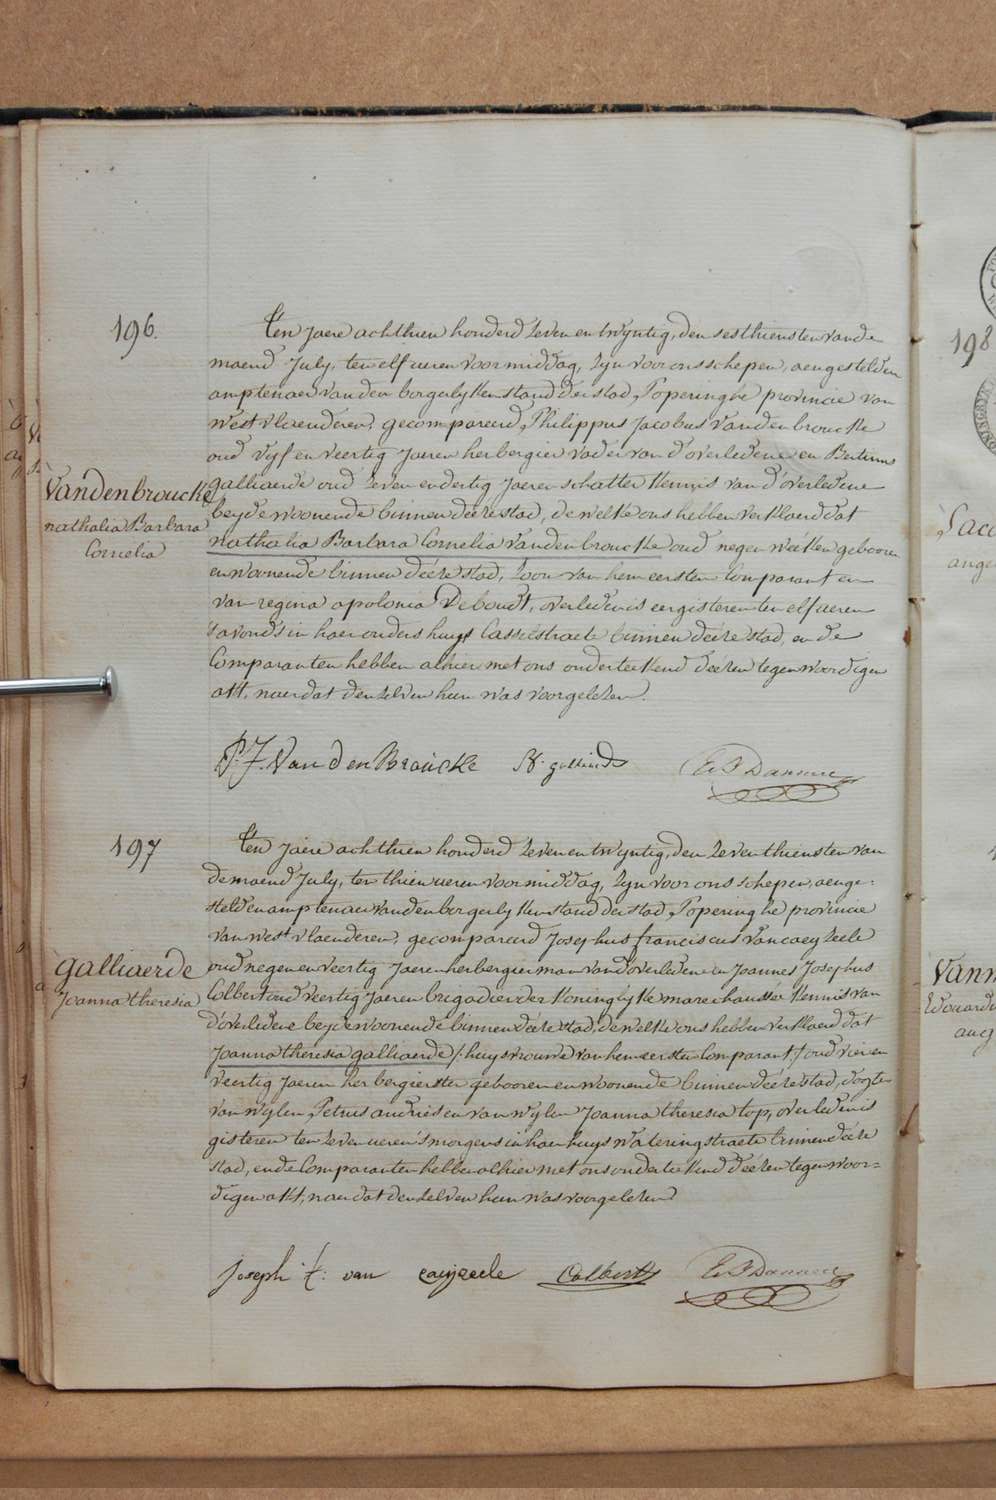 196.
Vandenbroucke
nathalia Barbara
Cornelia
Ten jaere achthien honderd zeven en twyntig, den sesthiensten vande
maend July, ten elf ueren voormiddag, zyn voor ons schepen, aengestelden
amptenaer van den borgerlyken stand der stad Poperinghe provincie van
west vlaenderen, gecompareerd, Philippus Jacobus vandenbroucke
oud vyf en veertig jaeren herbergier vader van d'overledene en Bertinus
galliaerde oud zeven en dertig jaeren schatter kennis van d'overledene
beyde woonende binnen deéze stad, de welke ons hebben verklaerd dat
nathalia Barbara Cornelia vandenbroucke oud negen weéken gebooren
en woonende binnen deéze stad, zoon van hem eersten Comparant en
van regina apolonia Deboudt, overleden is eergisteren ten elf ueren
s'avonds in haer ouders huys Casselstraete binnen deéze stad, en de
Comparanten hebben alhier met ons onderteekend deézen tegenwoordigen
akt, naer dat den zelven hun was voorgelezen.
P. J. Van den Broucke B. galliaerde
197
galliaerde
Joanna theresia
Ten jaere achthien honderd zeven en twyntig, den zeventhiensten van
de maend July, ten thien ueren voormiddag, zyn voor ons schepen, aenge-
stelden amptenaer van den borgerlyken stand der stad Poperinghe provincie
van west vlaenderen, gecompareerd Josephus franciscus vancaeyzeele
oud negen en veertig jaeren herbergier man van d'overledene en Joannes Josephus
Colbert oud veertig jaeren brigadier der Koninglyke marechaussée kennis van
d'overledene beyde woonende binnen deéze stad, de welke ons hebben verklaerd dat
Joanna theresia galliaerde /: huysvrouwe van hem eersten Comparant :/ oud vier en
veertig jaeren herbergierster gebooren en woonende binnen deéze stad, dogter
van wylen Petrus andries en van wylen Joanna theresia top, overleden is
gisteren ten zeven ueren s'morgens in haer huys wateringstraete binnen deéze
stad, en de Comparanten hebben alhier met ons onderteekend deézen tegenwoor-
digen akt, naer dat den zelven hun was voorgelezen
Joseph f: van caeyzeele Colbert
198